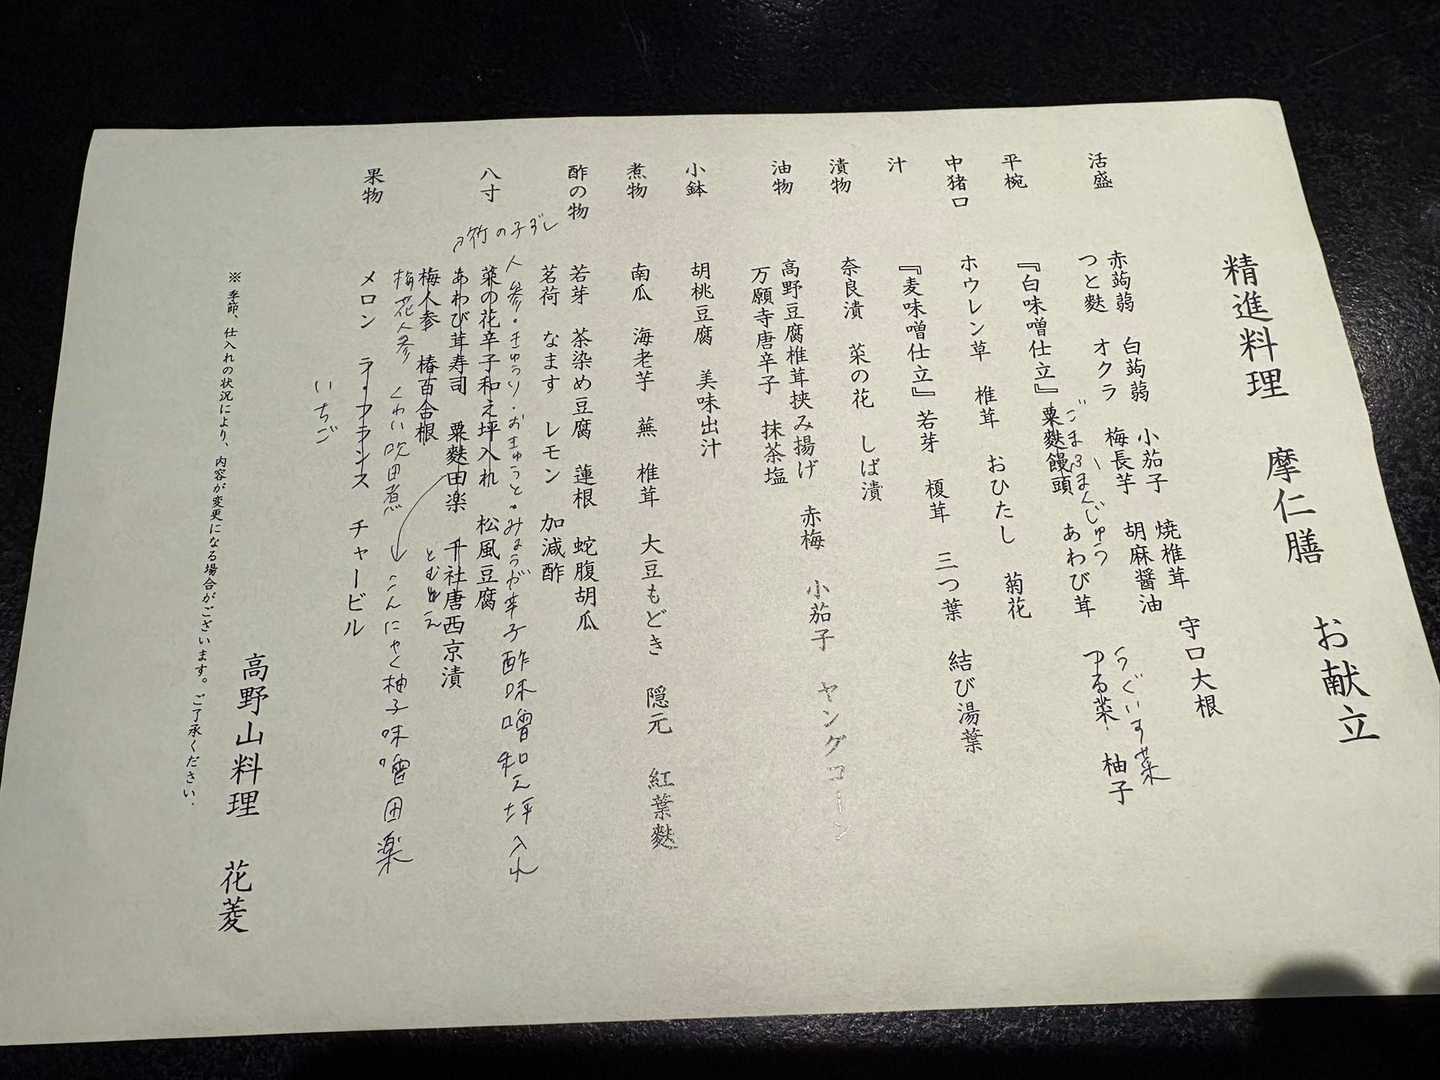 精進料理 摩仁膳 お献立
活盛
赤蒟蒻 白蒟蒻 小茄子 焼椎茸 守口大根
つと麩 オクラ 梅長芋 胡麻醤油
平椀
『白味噌仕立』 粟麩饅頭 あわび茸 つる菜 柚子
ごまふまんじゅう
うぐいす菜
中猪口
ホウレン草 椎茸 おひたし 菊花
汁
『麦味噌仕立』 若芽 榎茸 三つ葉 結び湯葉
漬物
奈良漬 菜の花 しば漬
油物
高野豆腐椎茸挟み揚げ 赤梅 小茄子 ヤングコーン
万願寺唐辛子 抹茶塩
小鉢
胡桃豆腐 美味出汁
煮物
南瓜 海老芋 蕪 椎茸 大豆もどき 隠元 紅葉麩
酢の物
若芽 茶染め豆腐 蓮根 蛇腹胡瓜
茗荷 なます レモン 加減酢
八寸
竹の子ずし
人参・きゅうり・おきゅうと・みょうが辛子酢味噌和え坪入れ
菜の花辛子和え坪入れ 松風豆腐
あわび茸寿司 粟麩田楽 千社唐西京漬
梅人参 椿百合根
梅花人参 くわい吹田煮 こんにゃく柚子味噌田楽
果物
メロン ラ・フランス チャービル
いちご
※ 季節、仕入れの状況により、内容が変更になる場合がございます。ご了承ください。
高野山料理 花菱